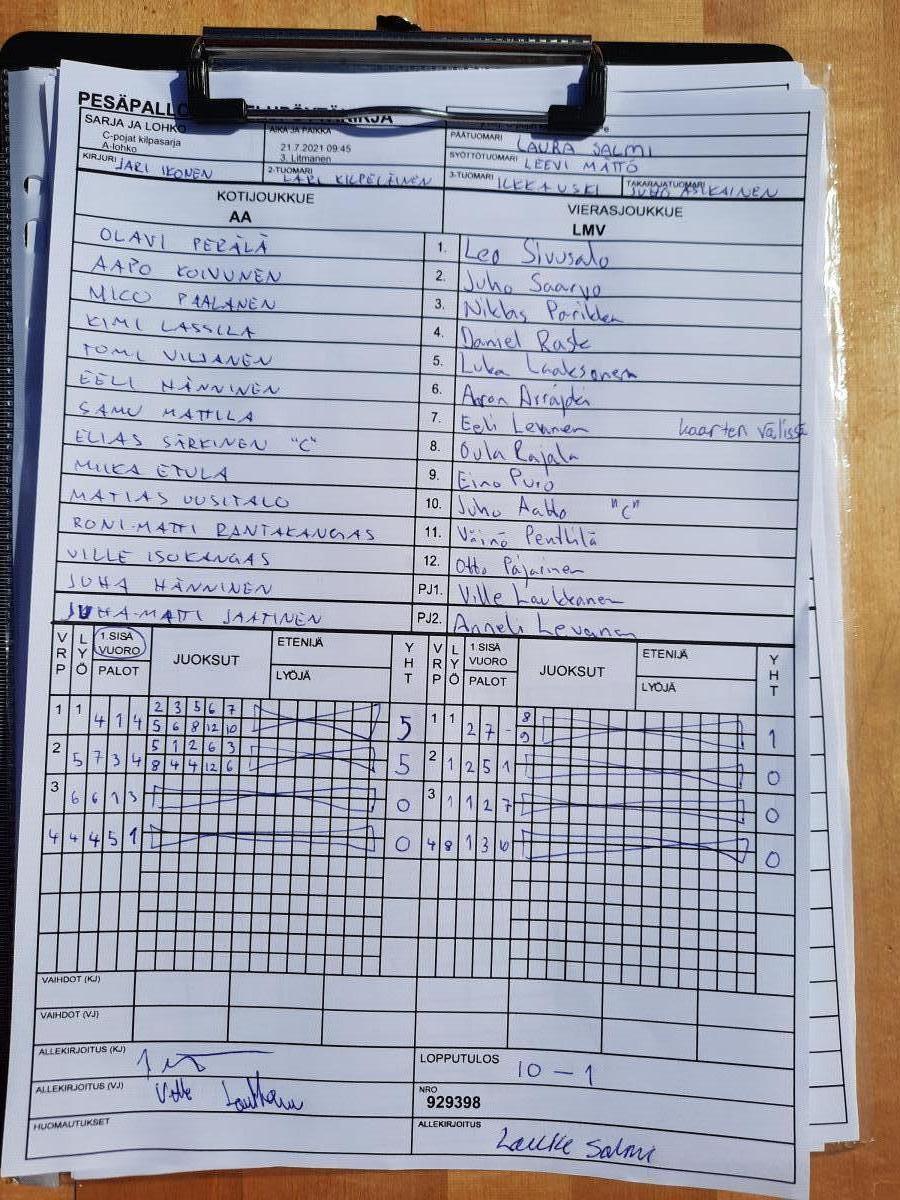 PESÄPALLO
SARJA JA LOHKO
C-pojat kilpasarja
A-lohko
AIKA JA PAIKKA
21.7.2021 09:45
3. Litmanen
PÄÄTUOMARI LAURA SALMI
SYÖTTÖTUOMARI LEEVI MÄTTÖ
KIRJURI JARI IKONEN
2-TUOMARI LARI KILPELÄINEN
3-TUOMARI ILKKA USKI
TAKARAJATUOMARI JUHO ASIKAINEN
KOTIJOUKKUE
AA
VIERASJOUKKUE
LMV
OLAVI PERÄLÄ 1. Leo Sivusalo
AAPO KOIVUNEN 2. Juho Saarvo
MICO PAALANEN 3. Niklas Parikka
KIMI LASSILA 4. Daniel Rask
TOMI VILJANEN 5. Luka Laaksonen
EELI HÄNNINEN 6. Aaron
SAMU MATTILA 7. Eeli Levanen kaarten välissä
ELIAS SÄRKINEN "C" 8. Oula Rajala
MIIKA ETULA 9. Eino Puro
MATIAS UUSITALO 10. Juho Aatto "C"
RONI-MATTI RANTAKANGAS 11. Väinö Penttilä
VILLE ISOKANGAS 12. Otto Pajarinen
JUHA HÄNNINEN PJ1. Ville Laukkanen
JUHA-MATTI JAATINEN PJ2. Anneli Levanen
VRP LYÖ 1.SISÄ VUORO PALOT JUOKSUT ETENIJÄ LYÖJÄ YHT VRP LYÖ 1.SISÄ VUORO PALOT JUOKSUT ETENIJÄ LYÖJÄ YHT
1 1 4 1 4 2 3 5 6 7 5 1 1 2 7 - 8 1
5 6 8 12 10 9
2 5 7 3 4 5 1 2 6 3 5 2 1 2 5 1 0
8 4 4 12 6
3 6 6 1 3 0 3 1 1 2 7 0
4 4 4 5 1 0 4 8 1 3 10 0
VAIHDOT (KJ)
VAIHDOT (VJ)
ALLEKIRJOITUS (KJ)
LOPPUTULOS 10 - 1
ALLEKIRJOITUS (VJ) Ville Laukkanen
NRO
929398
HUOMAUTUKSET
ALLEKIRJOITUS
Salmi